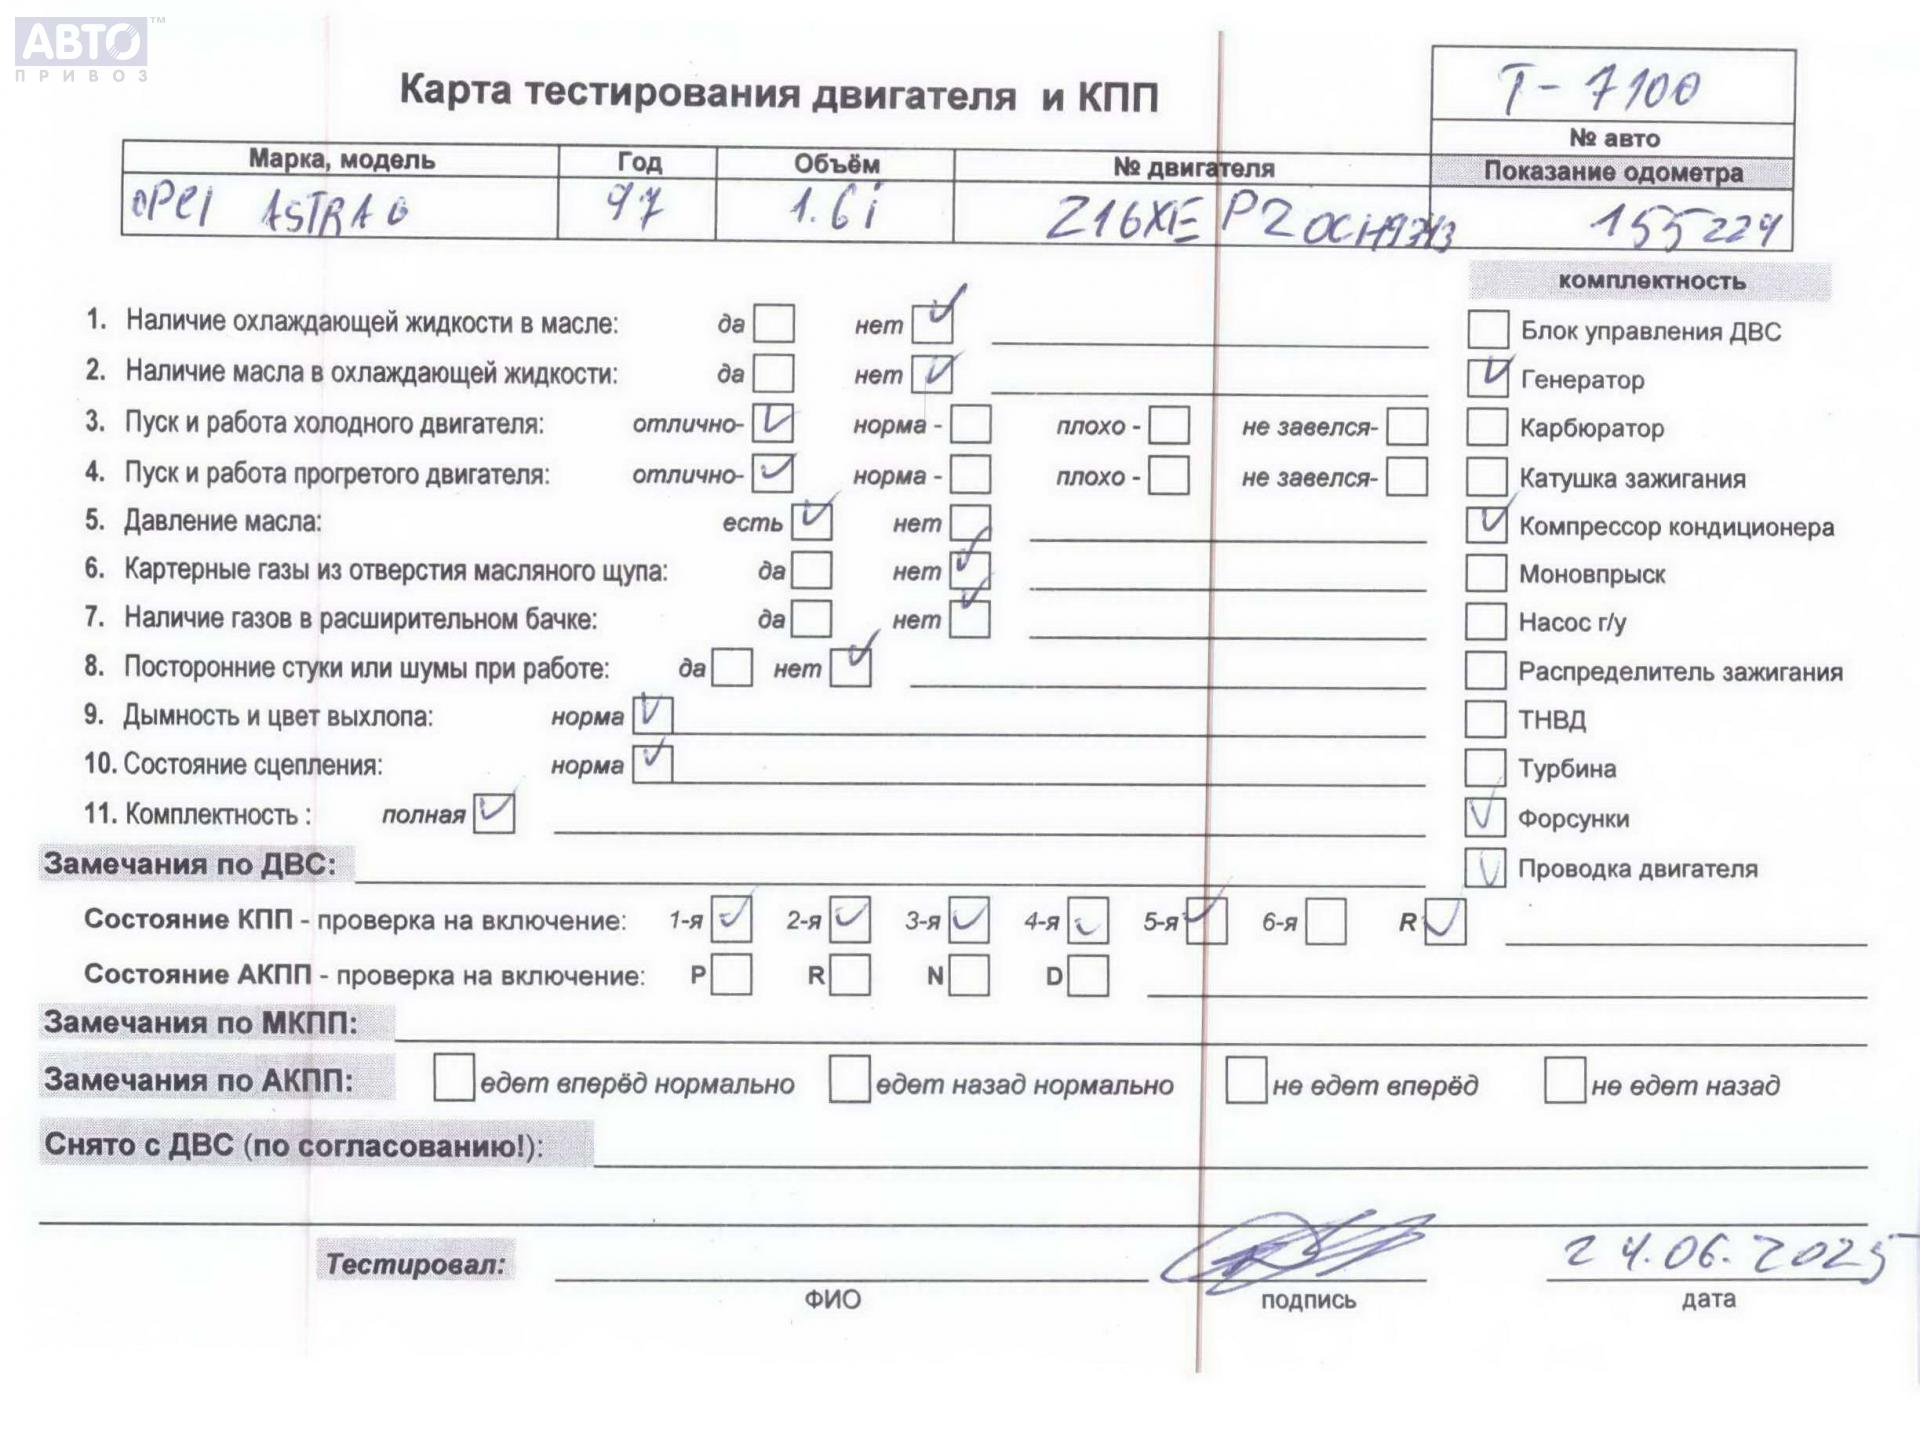 АВТО™
ПРИВОЗ
Карта тестирования двигателя и КПП
T-7100
№ авто
Марка, модель Год Объём № двигателя Показание одометра
OPEL ASTRA G 97 1.6i Z16XE 155224
комплектность
1. Наличие охлаждающей жидкости в масле: да нет
Блок управления ДВС
2. Наличие масла в охлаждающей жидкости: да нет
Генератор
3. Пуск и работа холодного двигателя: отлично- норма - плохо - не завелся-
Карбюратор
4. Пуск и работа прогретого двигателя: отлично- норма - плохо - не завелся-
Катушка зажигания
5. Давление масла: есть нет
Компрессор кондиционера
6. Картерные газы из отверстия масляного щупа: да нет
Моновпрыск
7. Наличие газов в расширительном бачке: да нет
Насос г/у
8. Посторонние стуки или шумы при работе: да нет
Распределитель зажигания
9. Дымность и цвет выхлопа: норма
ТНВД
10. Состояние сцепления: норма
Турбина
11. Комплектность : полная
Форсунки
Замечания по ДВС:
Проводка двигателя
Состояние КПП - проверка на включение: 1-я 2-я 3-я 4-я 5-я 6-я R
Состояние АКПП - проверка на включение: P R N D
Замечания по МКПП:
Замечания по АКПП: едет вперёд нормально едет назад нормально не едет вперёд не едет назад
Снято с ДВС (по согласованию!):
Тестировал: 24.06.2025
ФИО подпись дата